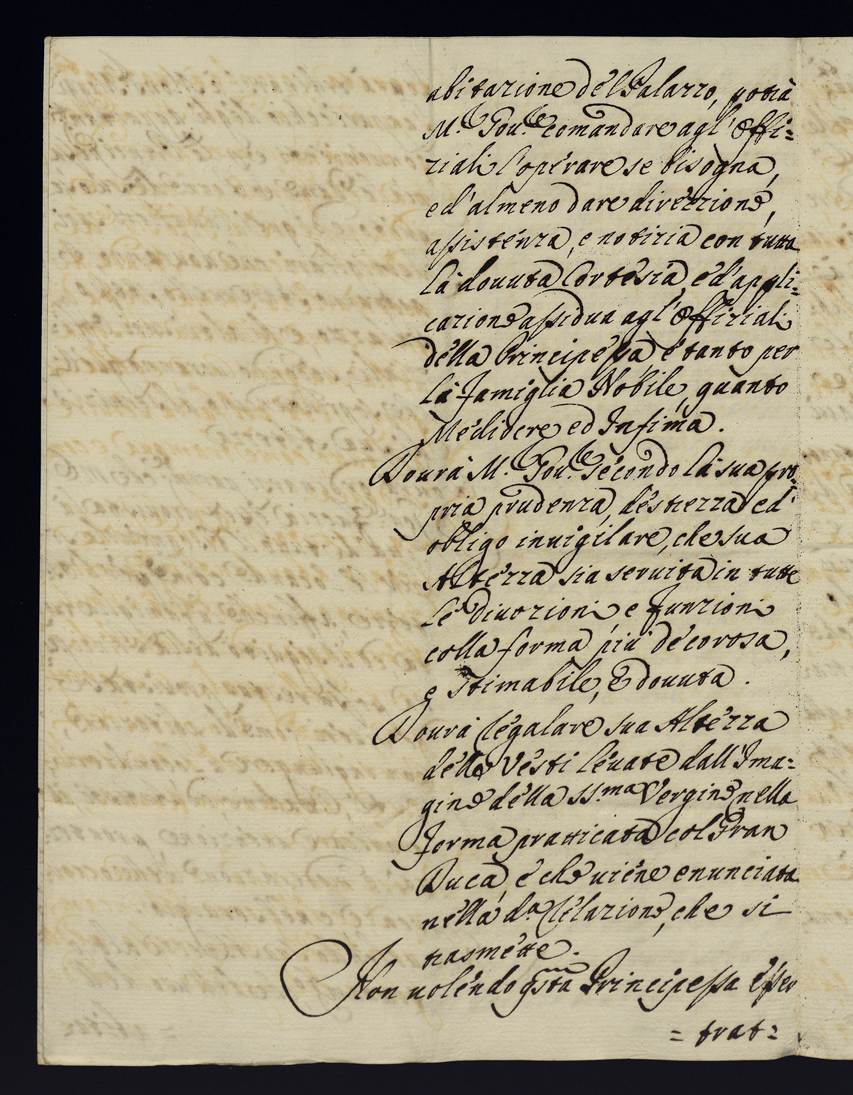 abitazione del Palazzo, potrà
M.r Gou.re comandare agl'Offi=
ziali l'operare se bisogna,
ed'almeno dare direzzione,
assistenza, e notizia con tutta
la douuta Cortesia, ed'appli=
cazione assidua agl'Offiziali
della Principessa e tanto per
la Famiglia Nobile, quanto
Mediocre, ed Infima.
Dourà M.r Gou.re secondo la sua pro=
pria prudenza, destrezza ed'
obligo inuigilare, che sua
Altezza sia seruita in tutte
le diuozioni e funzioni
colla forma piu' decorosa,
e stimabile, e douuta.
Dourà regalare sua Altezza
delle Vesti leuate dall'Ima=
gine della SS.ma Vergine nella
forma pratticata col Gran
Duca, e che uiene enunciata
nella d.a Relazione, che si
trasmette.
Non uolendo q.sta Principessa esser
= trat=